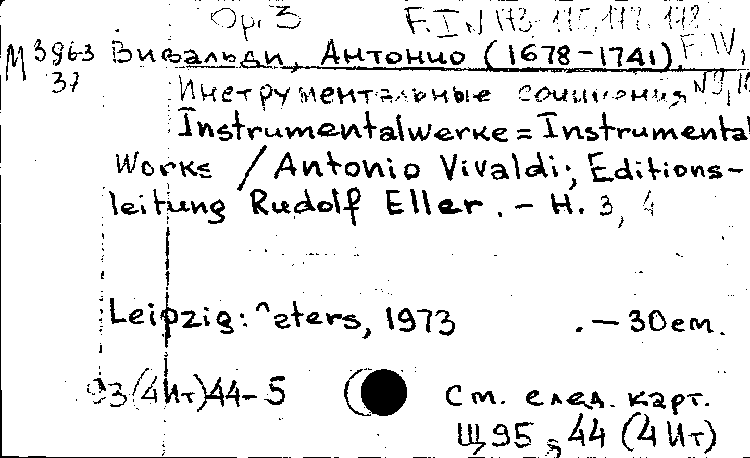 Op. 3 F. I N 173-175, 177, 178
М 3963 Вивальди, Антонио (1678-1741). F. IV,
37 Инструментальные сочинения N 9, 10
Instrumentalwerke = Instrumental
Works / Antonio Vivaldi; Editions-
leitung Rudolf Eller. - H. 3, 4
Leipzig: Peters, 1973 . - 30 см.
93(4Ит)44-5 См. след. карт.
Щ95я44(4Ит)